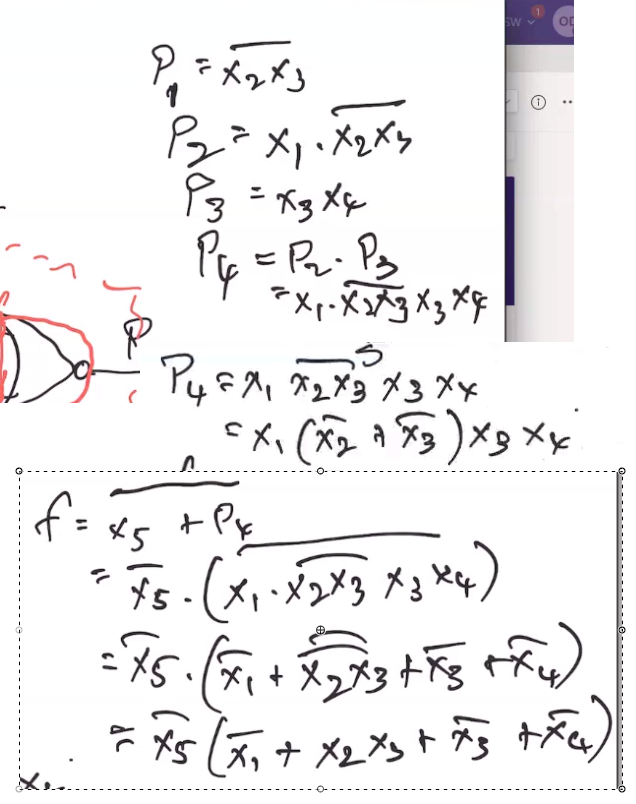 SW 1 OD
P₁ = \overline{x₂x₃}
P₂ = x₁ · \overline{x₂x₃}
P₃ = x₃x₄
P₄ = P₂ · P₃
= x₁ · \overline{x₂x₃} x₃ x₄
P
P₄ = x₁ \overline{x₂x₃} x₃ x₄
= x₁ (\overline{x₂} + \overline{x₃}) x₃ x₄
f = \overline{x₅ + P₄}
= \overline{x₅} · (\overline{x₁ · \overline{x₂x₃} x₃ x₄})
= \overline{x₅} · (\overline{x₁} + \overline{\overline{x₂x₃}} + \overline{x₃} + \overline{x₄})
= \overline{x₅} (\overline{x₁} + x₂x₃ + \overline{x₃} + \overline{x₄})